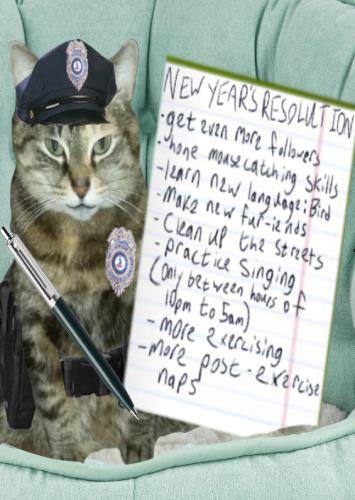 NEW YEAR'S RESOLUTION
-get even more followers
-hone mousecatching skills
-learn new language: Bird
-Make new fur-iends
-Clean up the streets
-practice Singing
(only between hours of
10pm to 5am)
-more exercising
-more post-exercise
naps